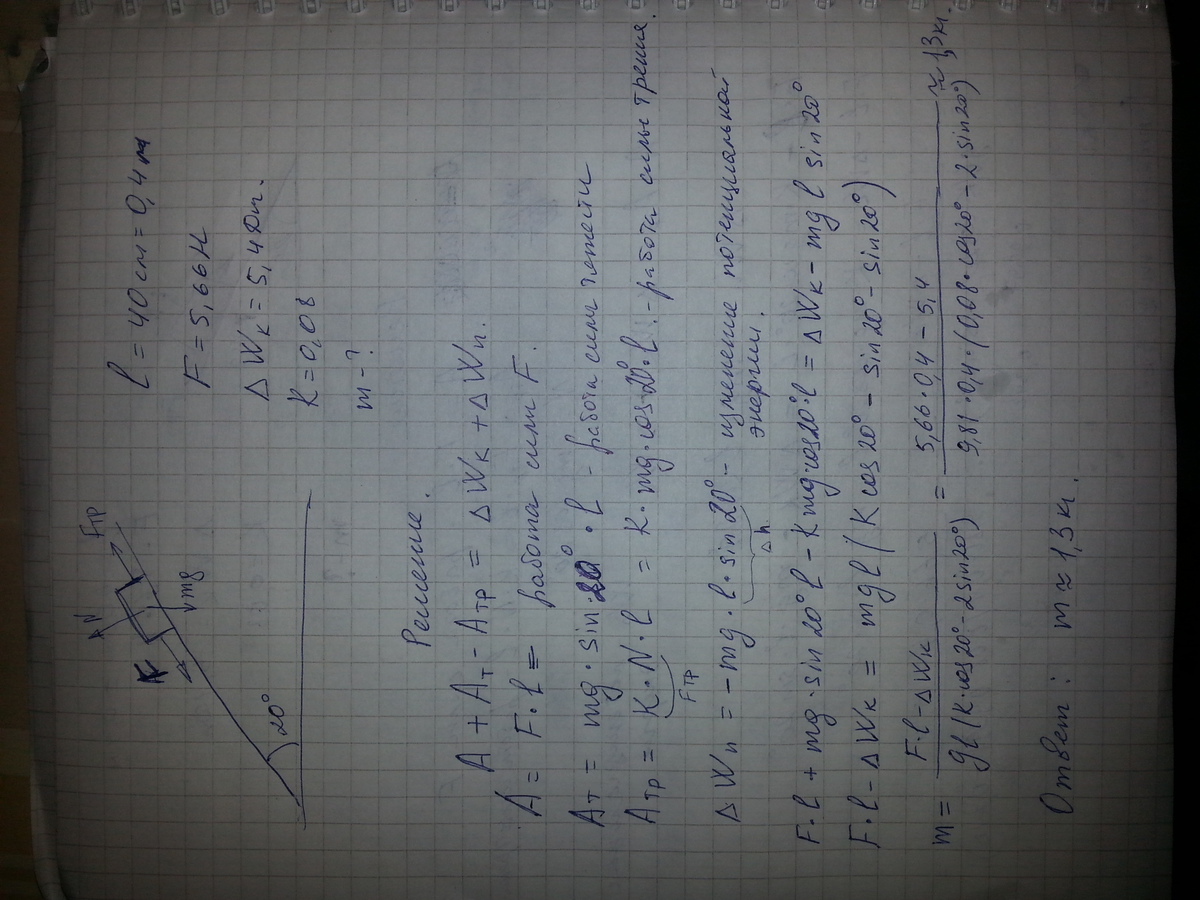 N
Fтр
F
mg
20°
l = 40 см = 0,4 м
F = 5,66 Н
Δ Wк = 5,4 Дж.
K = 0,08
m - ?
Решение.
A + Aт - Aтр = Δ Wк + Δ Wп.
A = F·l = работа силы F.
Aт = mg · sin 20° · l - работа силы тяжести
Aтр = K·N·l = K·mg·cos 20°·l - работа силы трения.
Fтр
Δ Wп = - mg · l · sin 20° - изменение потенциальной
Δh
энергии.
F·l + mg · sin 20° l - K mg·cos20°·l = Δ Wк - mg l sin 20°
F·l - Δ Wк = mg l ( K cos 20° - sin 20° - sin 20°)
m = F·l - ΔWк / gl (K·cos20° - 2 sin20°) = 5,66·0,4 - 5,4 / 9,81·0,4·(0,08·cos20° - 2·sin20°) ≈ 1,3 кг.
Ответ : m ≈ 1,3 кг.